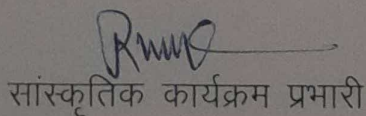 सांस्कृतिक कार्यक्रम प्रभारी